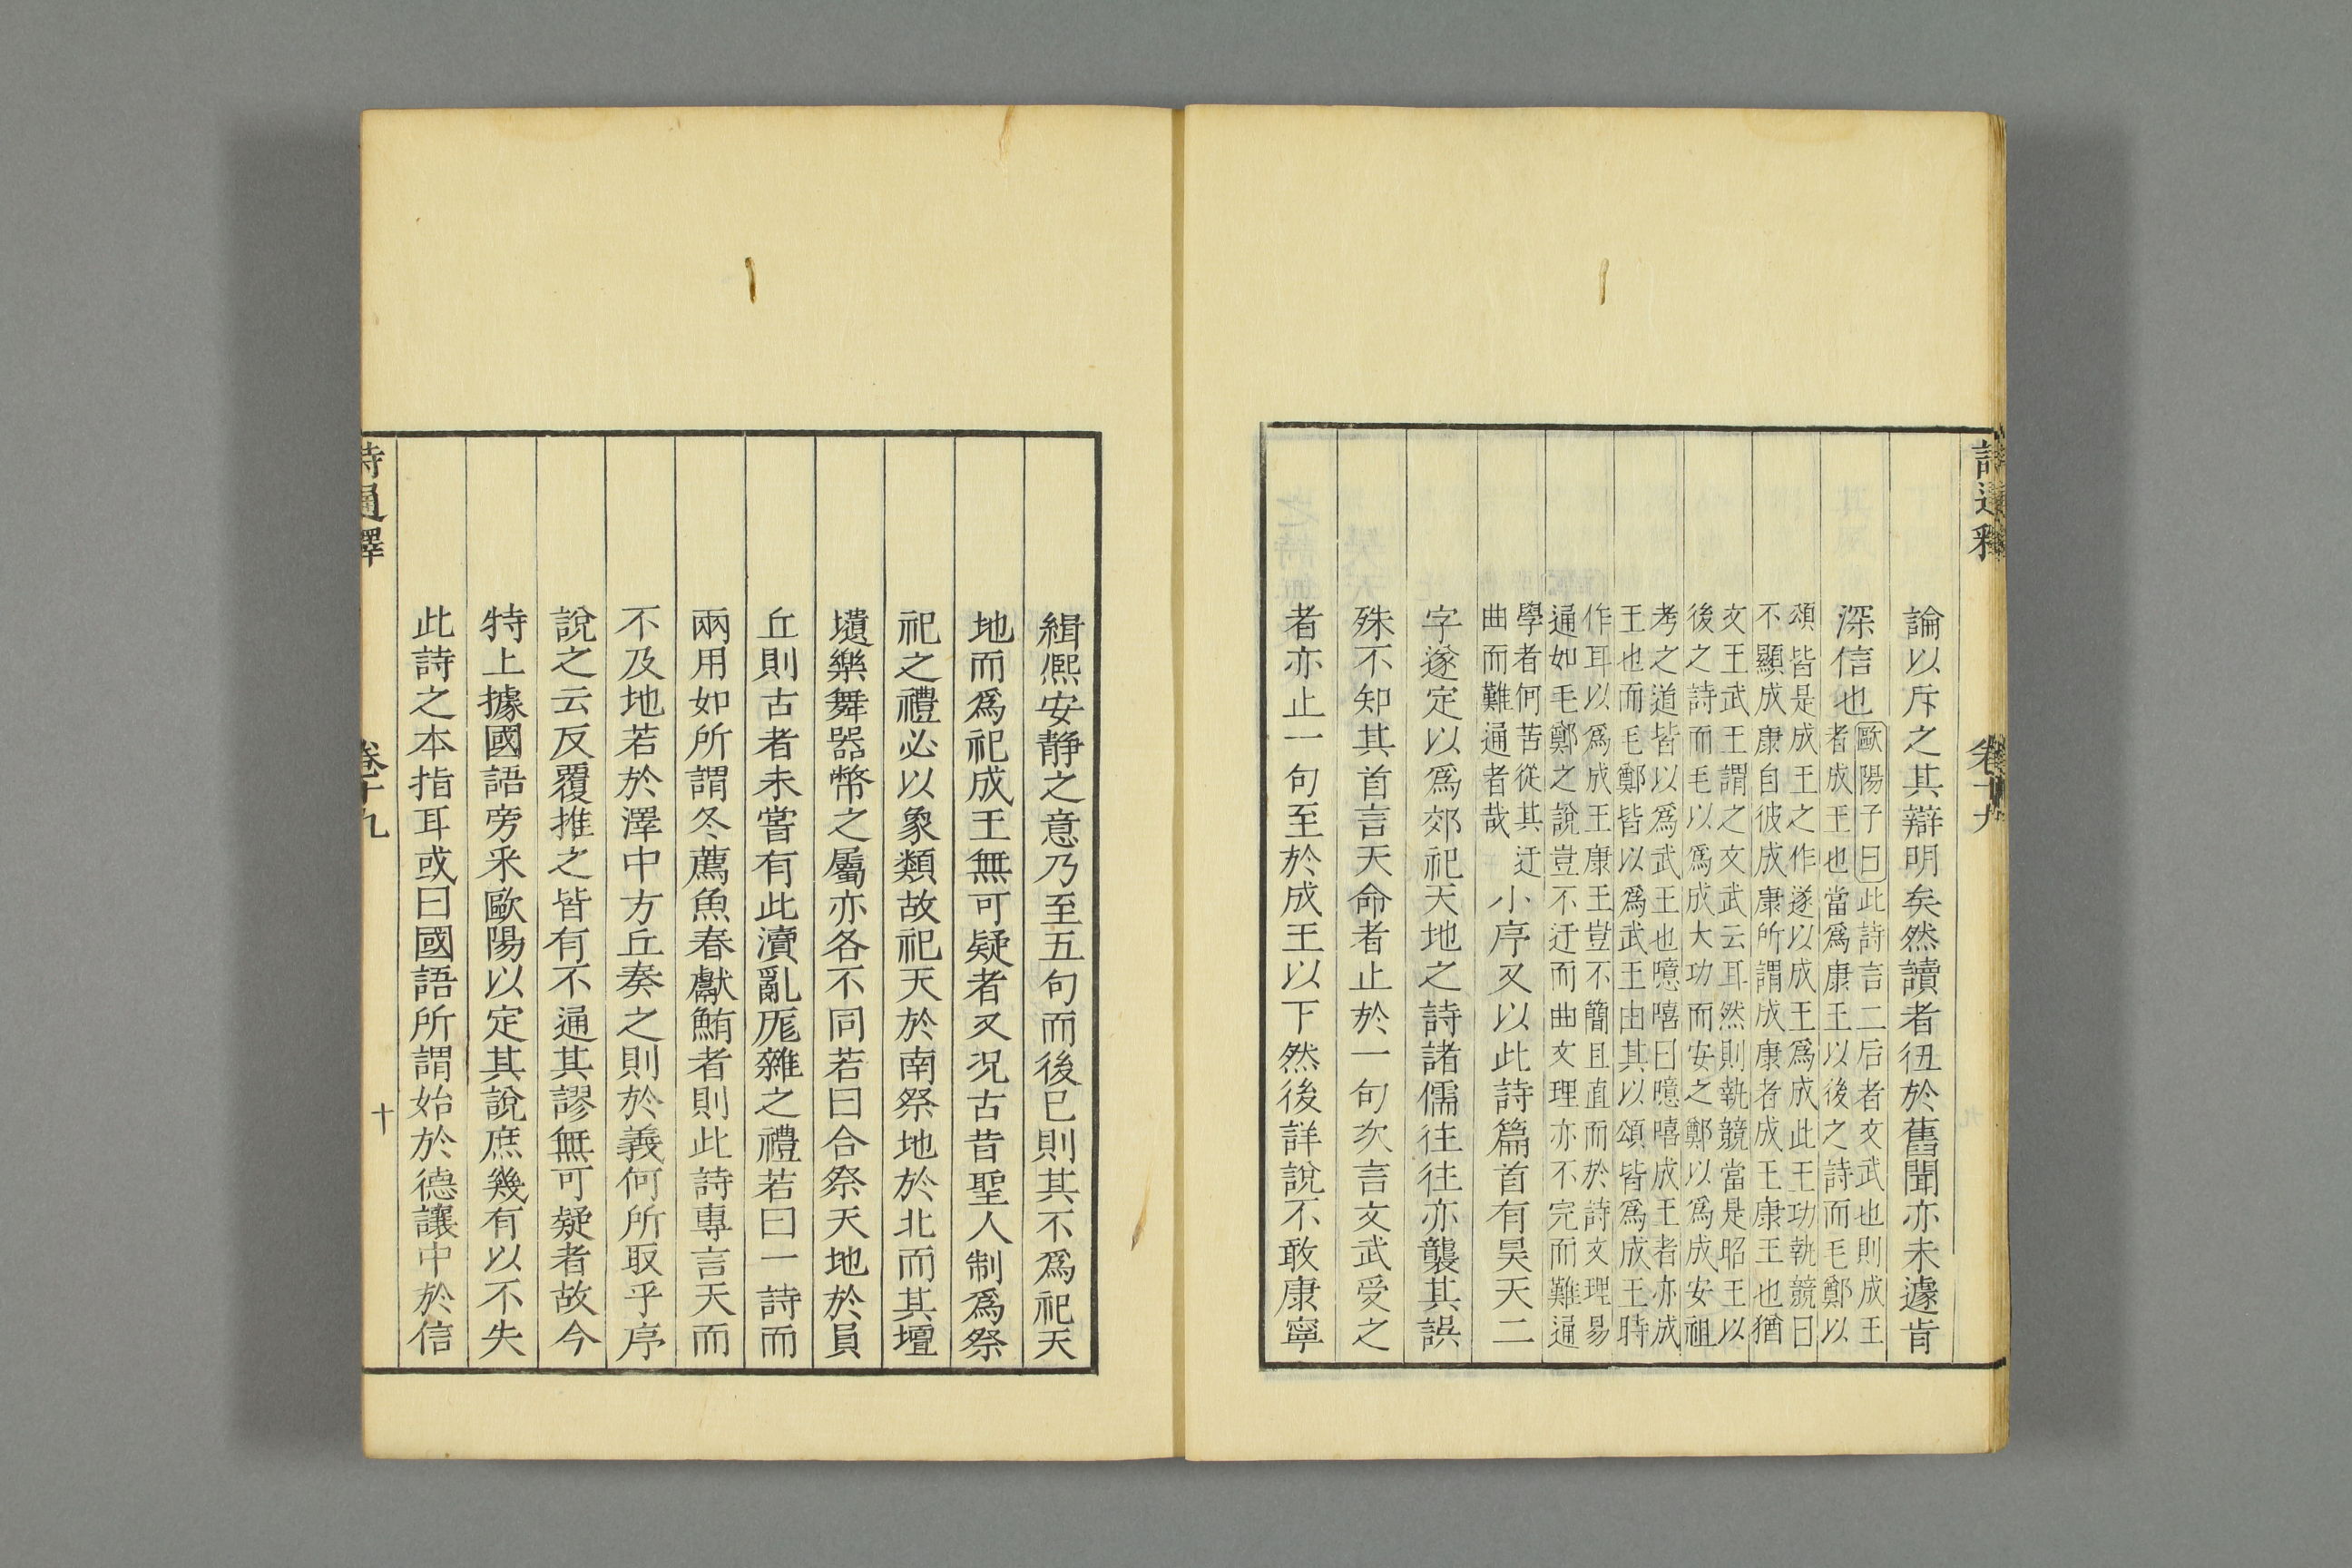 詩通釋 卷十九
論以斥之其辯明矣然讀者徃於舊聞亦未遽肯
深信也
歐陽子曰此詩言二后者文武也則成王
者成王也當爲康王以後之詩而毛鄭以
頌皆是成王之作遂以成王爲成此王功執競曰
不顯成康自彼成康所謂成康者成王康王也猶
文王武王謂之文武云耳然則執競當是昭王以
後之詩而毛以爲成大功而安之鄭以爲成安祖
考之道皆以爲武王也噫嘻曰噫嘻成王者亦成
王也而毛鄭皆以爲武王由其以頌皆爲成王時
作耳以爲成王康王豈不簡且直而於詩文理易
通如毛鄭之說豈不迂而曲文理亦不完而難通
學者何苦從其迂
曲而難通者哉
小序又以此詩篇首有昊天二
字遂定以爲郊祀天地之詩諸儒往往亦襲其誤
殊不知其首言天命者止於一句次言文武受之
者亦止一句至於成王以下然後詳說不敢康寧
緝熙安靜之意乃至五句而後已則其不爲祀天
地而爲祀成王無可疑者又况古昔聖人制爲祭
祀之禮必以象類故祀天於南祭地於北而其壇
壝樂舞器幣之屬亦各不同若曰合祭天地於員
丘則古者未嘗有此瀆亂厖雜之禮若曰一詩而
兩用如所謂冬薦魚春獻鮪者則此詩專言天而
不及地若於澤中方丘奏之則於義何所取乎序
說之云反覆推之皆有不通其謬無可疑者故今
特上據國語旁采歐陽以定其說庶幾有以不失
此詩之本指耳或曰國語所謂始於德讓中於信
詩通釋 卷十九 十